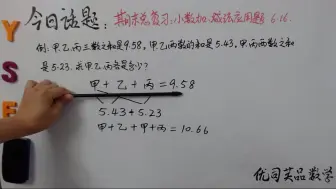 今日话题:期末总复习:小数加、减法应用题 6.16.
例.甲乙丙三数之和是9.58,甲乙两数的和是5.43,甲丙两数之和
是5.23.求甲乙丙各是多少?
甲+乙+丙=9.58
5.43+5.23
甲+乙+甲+丙=10.66
优司芙品数学
Y
S
E